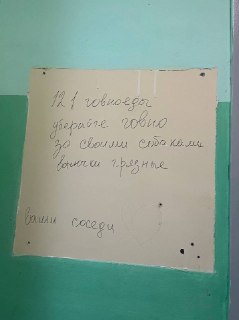 121 говноеды
уберайте говно
за своими собаками
вонючки грязные
ваши соседи